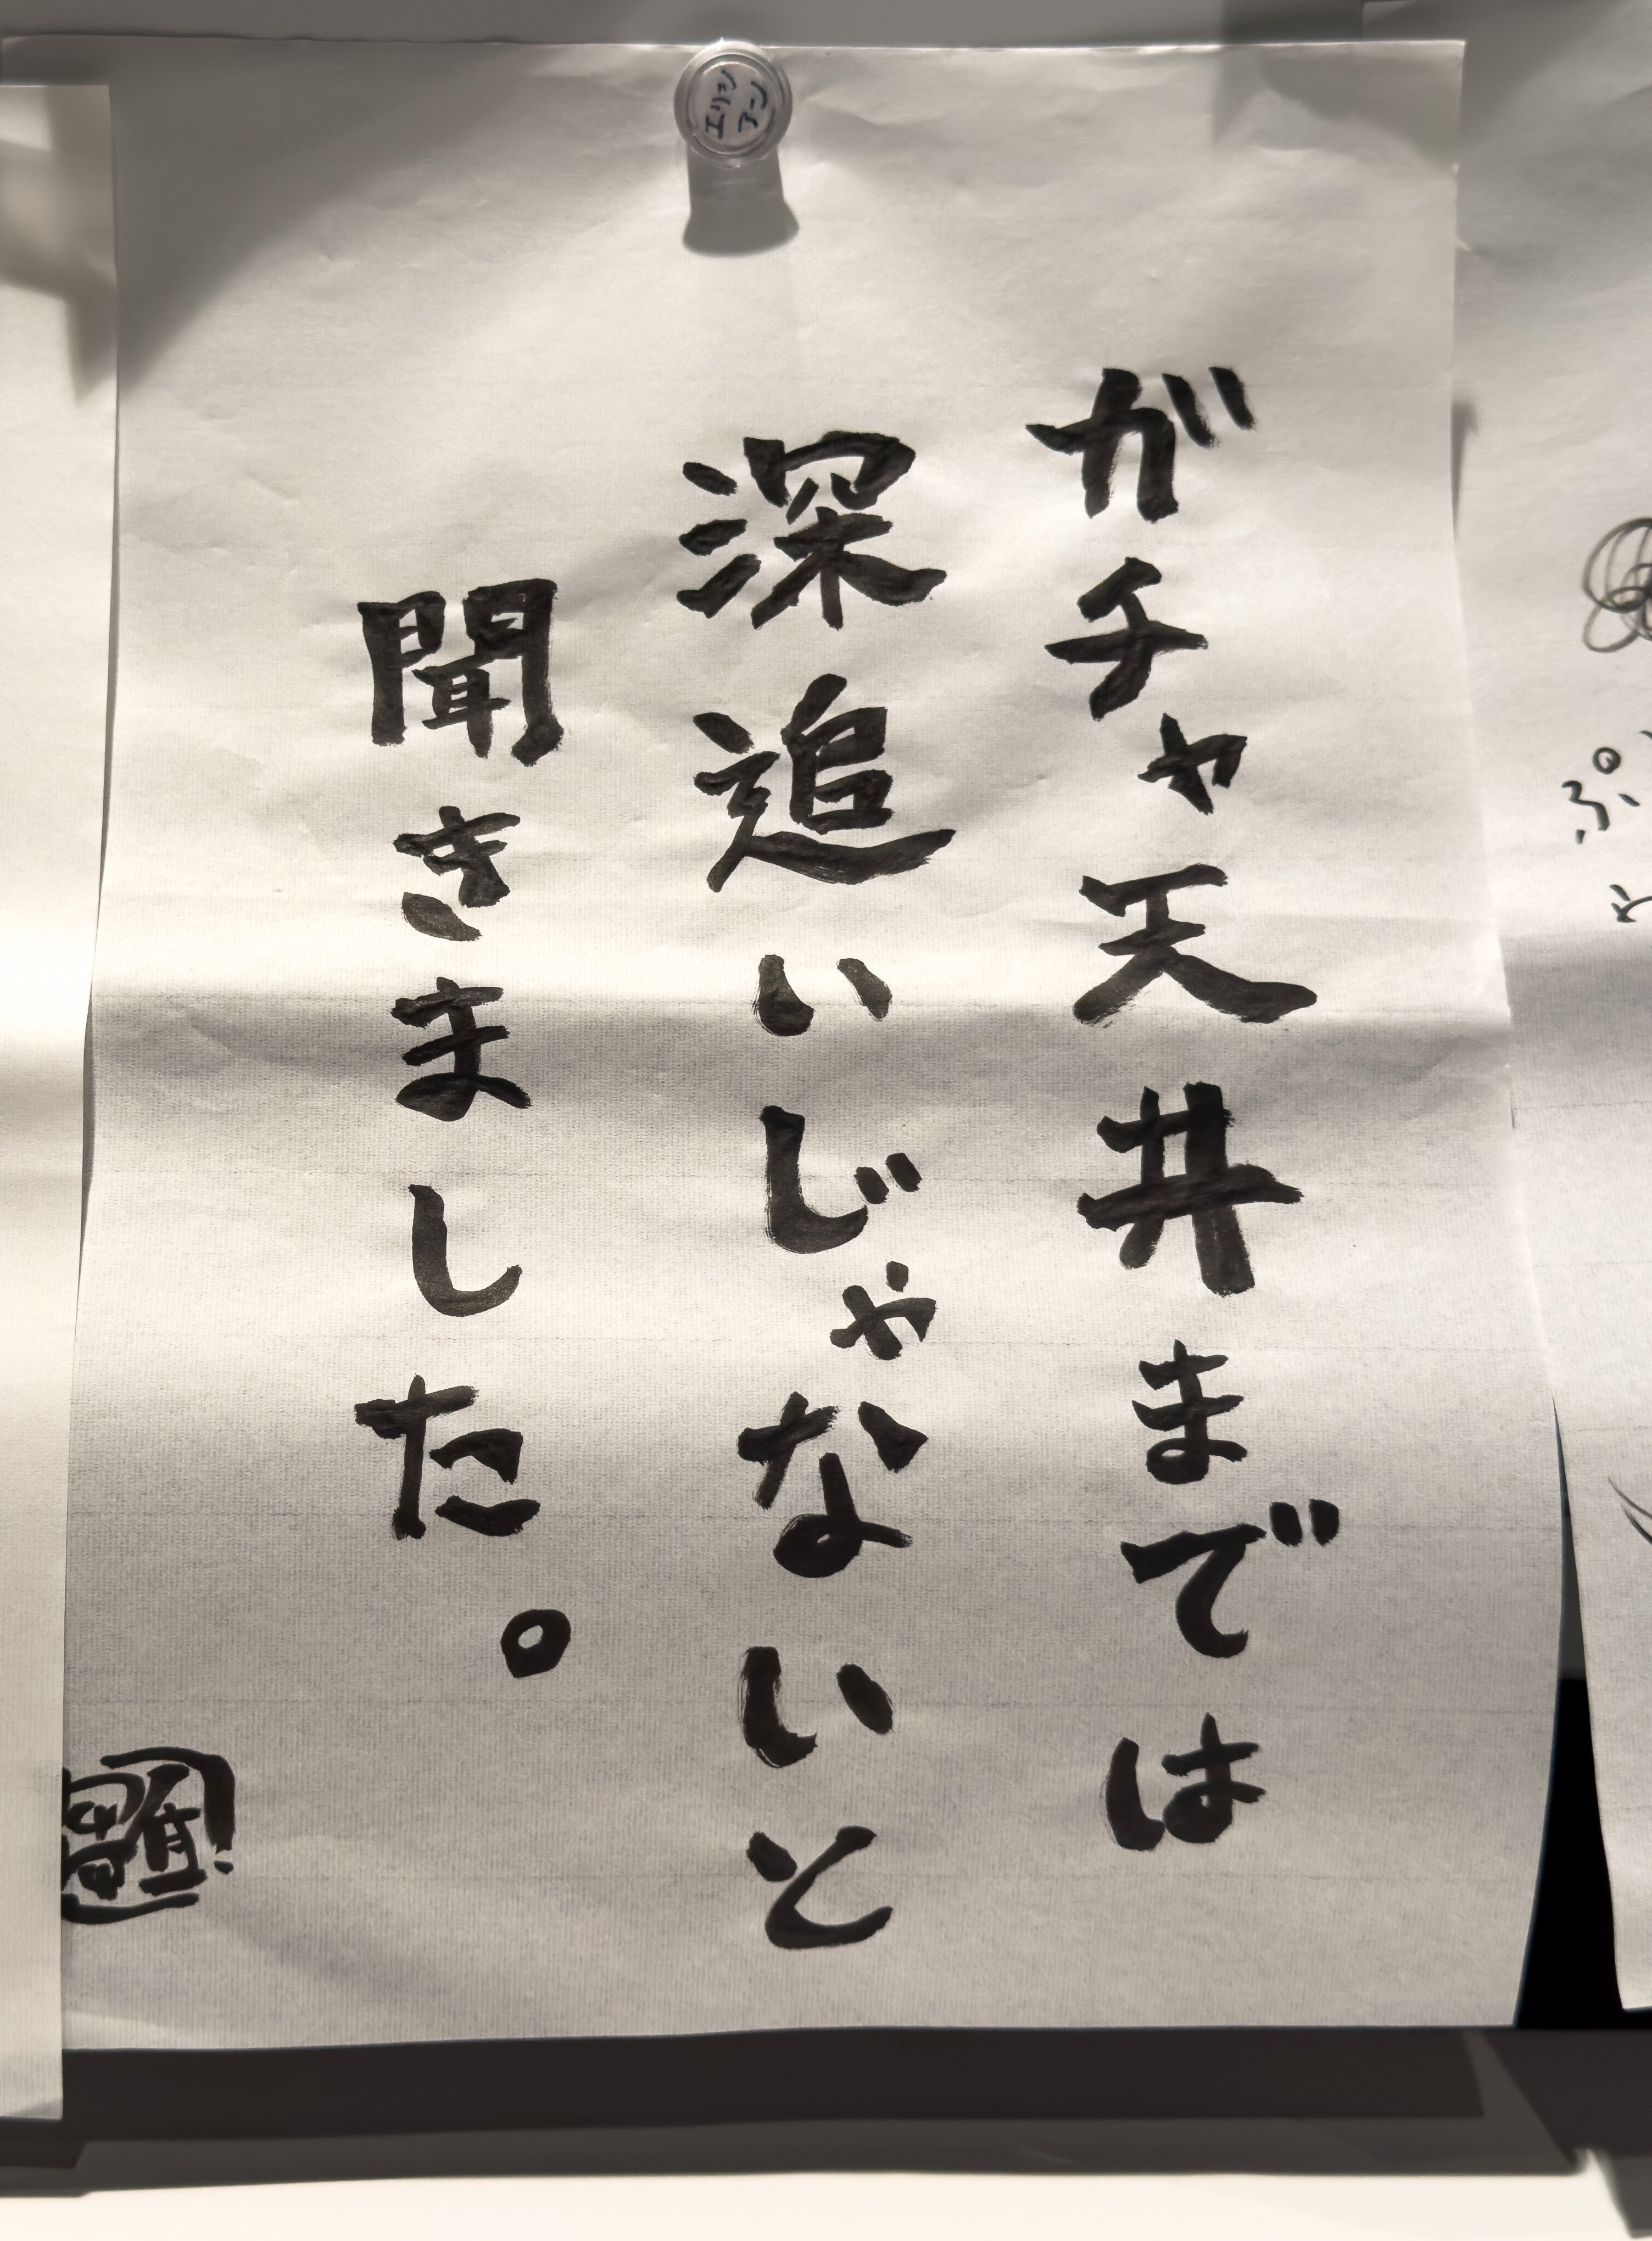 ガチャ天井までは
深追いじゃないと
聞きました。
エリン
アン
ぷ